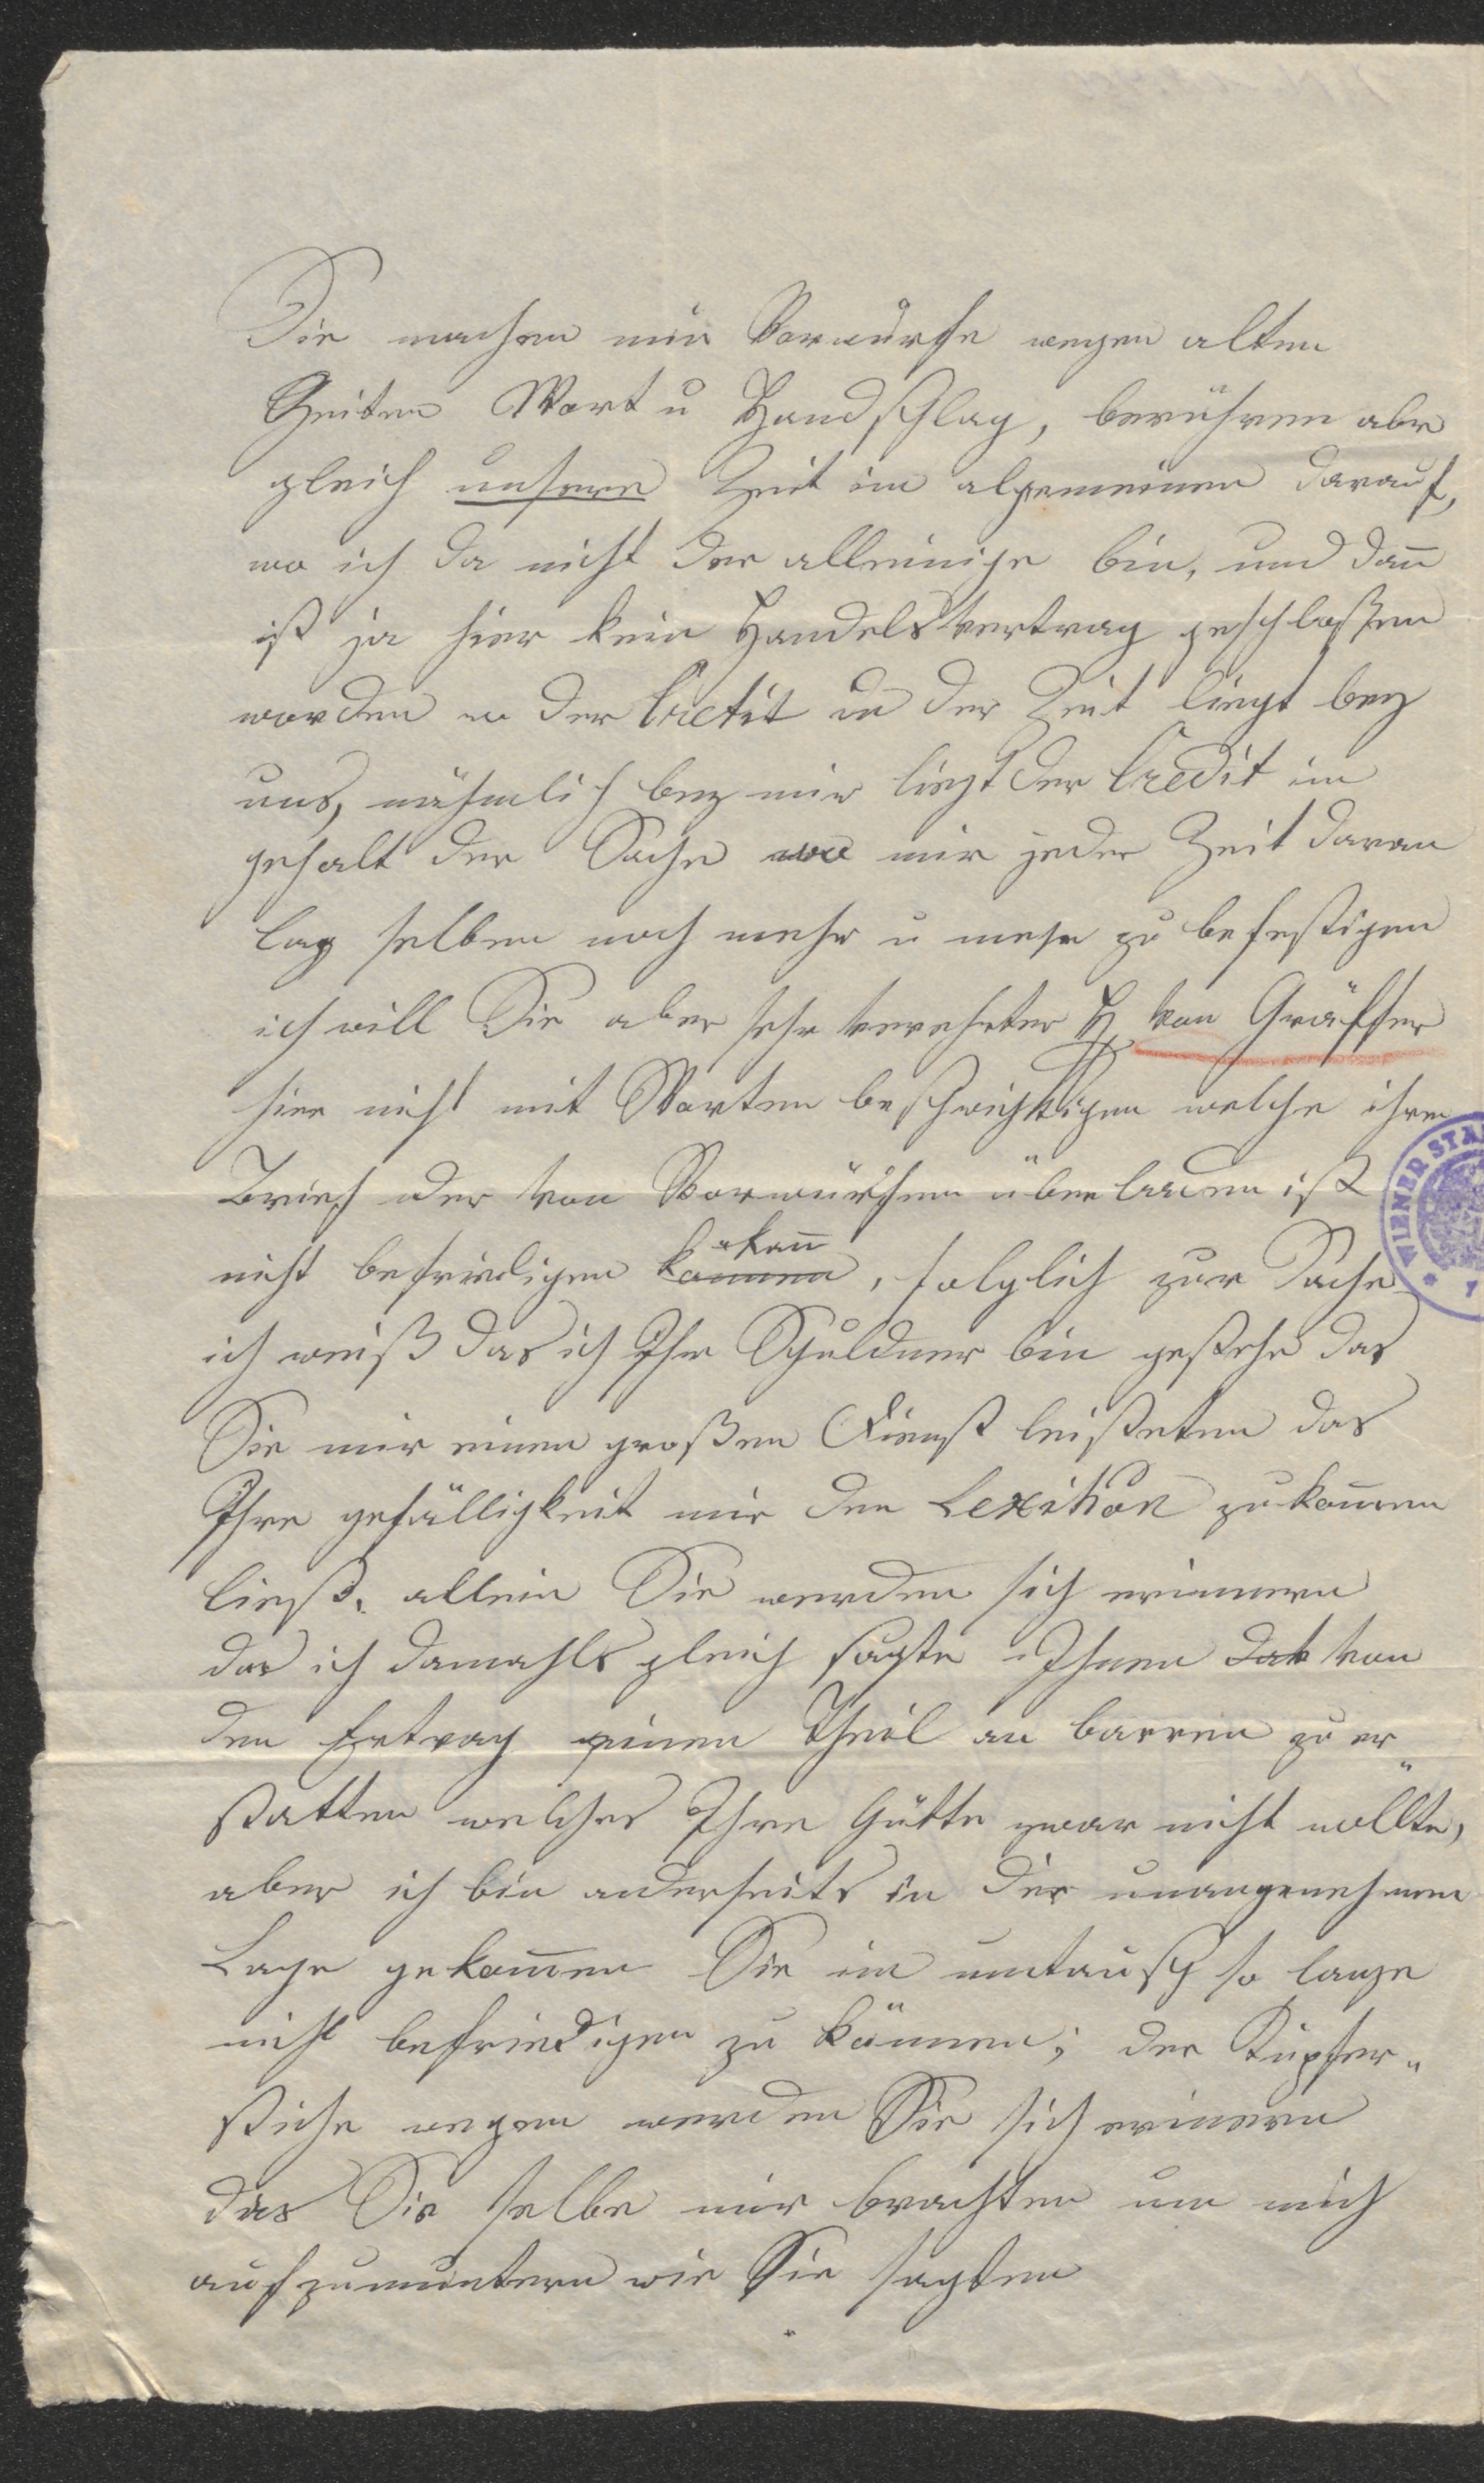 Sie machen mir Vorwürfe wegen alten
Zeiten Wort u Handschlag, berühren aber
gleich unsere Zeit im algemeinen darauf,
wo ich da nicht der alleinige bin, und dan̄
ist ja hier kein Handelsvertrag geschloßen
worden wo der Cretit in der Zeit liegt bey
uns, nähmlich bey mir liegt der Credit im
gehalt der Sache wo mir jeder Zeit daran
lag selben noch mehr u mehr zu befestigen
ich will Sie aber sehr verehrter H von Gräffer
hier nicht mit Worten beschwichtigen welche ihren
Brief der von Vorwürfen überladen ist
nicht befriedigen können kan̄, folglich zur Sache
ich weiß das ich Ihr Schuldner bin gestehe das
Sie mir einen großen Dienst leisteten das
Ihre gefälligkeit mir den Lexikon zukom̄en
ließ, allein Sie werden sich erinnern
das ich damahls gleich sagte Ihnen dab von
den Ertrag einen Theil an barren zu er„
statten welches Ihre Gütte zwar nicht wollte,
aber ich bin anderseits in der unangenehmen
Lage gekom̄en Sie im umtausch so lange
nicht befriedigen zu können; der Kupfer„
stiche wegen werden Sie sich erinern
das Sie selbe mir brachten um mich
aufzumuntern wie Sie sagten
WIENER STA